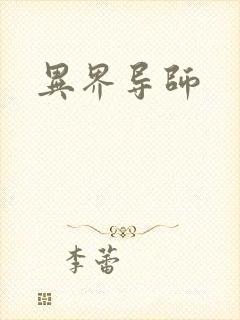 異界导師
李蕾